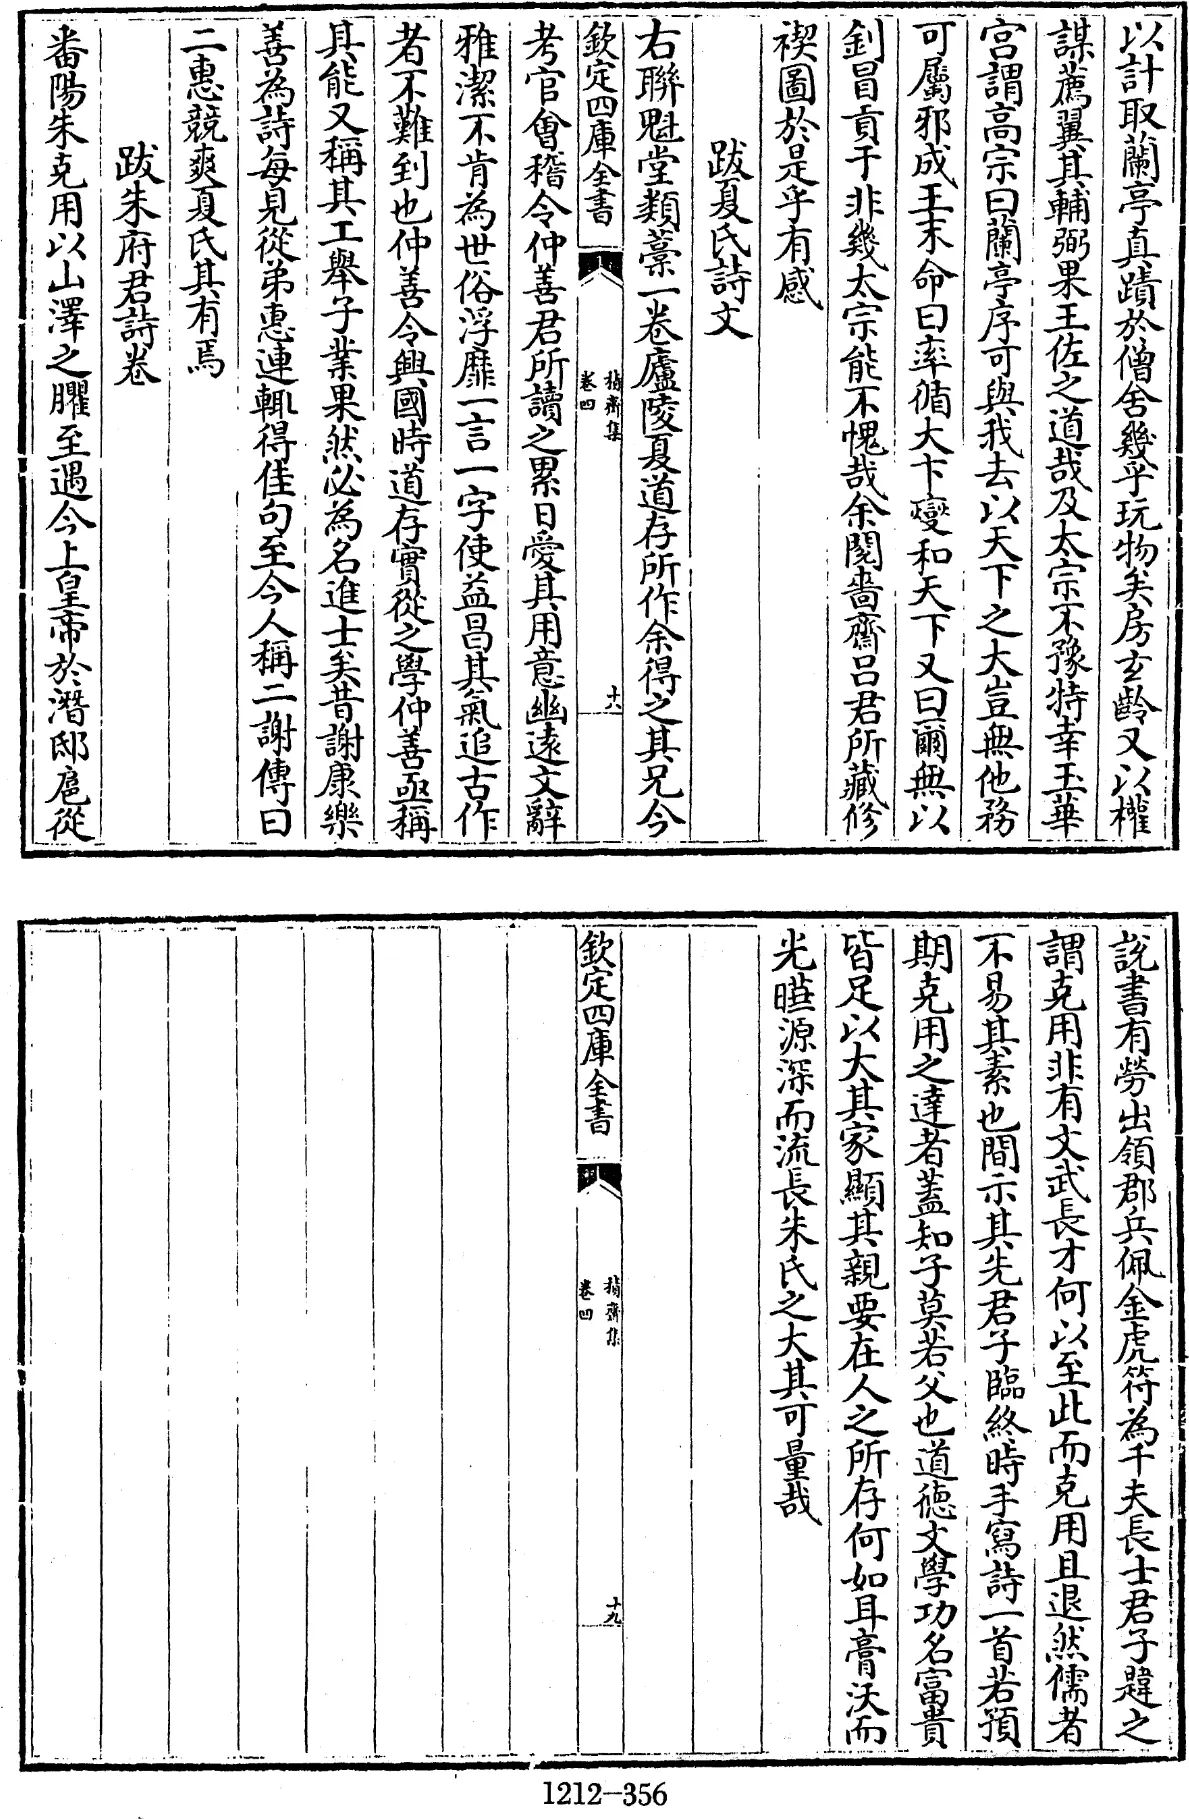 以計取蘭亭真蹟於僧舍幾乎玩物矣房玄齡又以權
謀薦翼其輔弼果王佐之道哉及太宗不豫特幸玉華
宮謂高宗曰蘭亭序可與我去以天下之大豈無他務
可屬邪成王末命曰率循大卞燮和天下又曰爾無以
釗冒貢于非幾太宗能不愧哉余閱嗇齋呂君所藏修
禊圖於是乎有感
跋夏氏詩文
右聯魁堂類藁一卷廬陵夏道存所作余得之其兄今
欽定四庫全書
積齋集
卷四
十八
考官會稽令仲善君所讀之累日愛其用意幽遠文辭
雅潔不肯為世俗浮靡一言一字使益昌其氣追古作
者不難到也仲善令興國時道存實從之學仲善亟稱
其能又稱其工舉子業果然必為名進士矣昔謝康樂
善為詩每見從弟惠連輒得佳句至今人稱二謝傳曰
二惠競爽夏氏其有焉
跋朱府君詩卷
番陽朱克用以山澤之臞至遇今上皇帝於潛邸扈從
說書有勞出領郡兵佩金虎符為千夫長士君子韙之
謂克用非有文武長才何以至此而克用且退然儒者
不易其素也間示其先君子臨終時手寫詩一首若預
期克用之達者蓋知子莫若父也道德文學功名富貴
皆足以大其家顯其親要在人之所存何如耳膏沃而
光曄源深而流長朱氏之大其可量哉
欽定四庫全書
積齋集
卷四
十九
1212-356